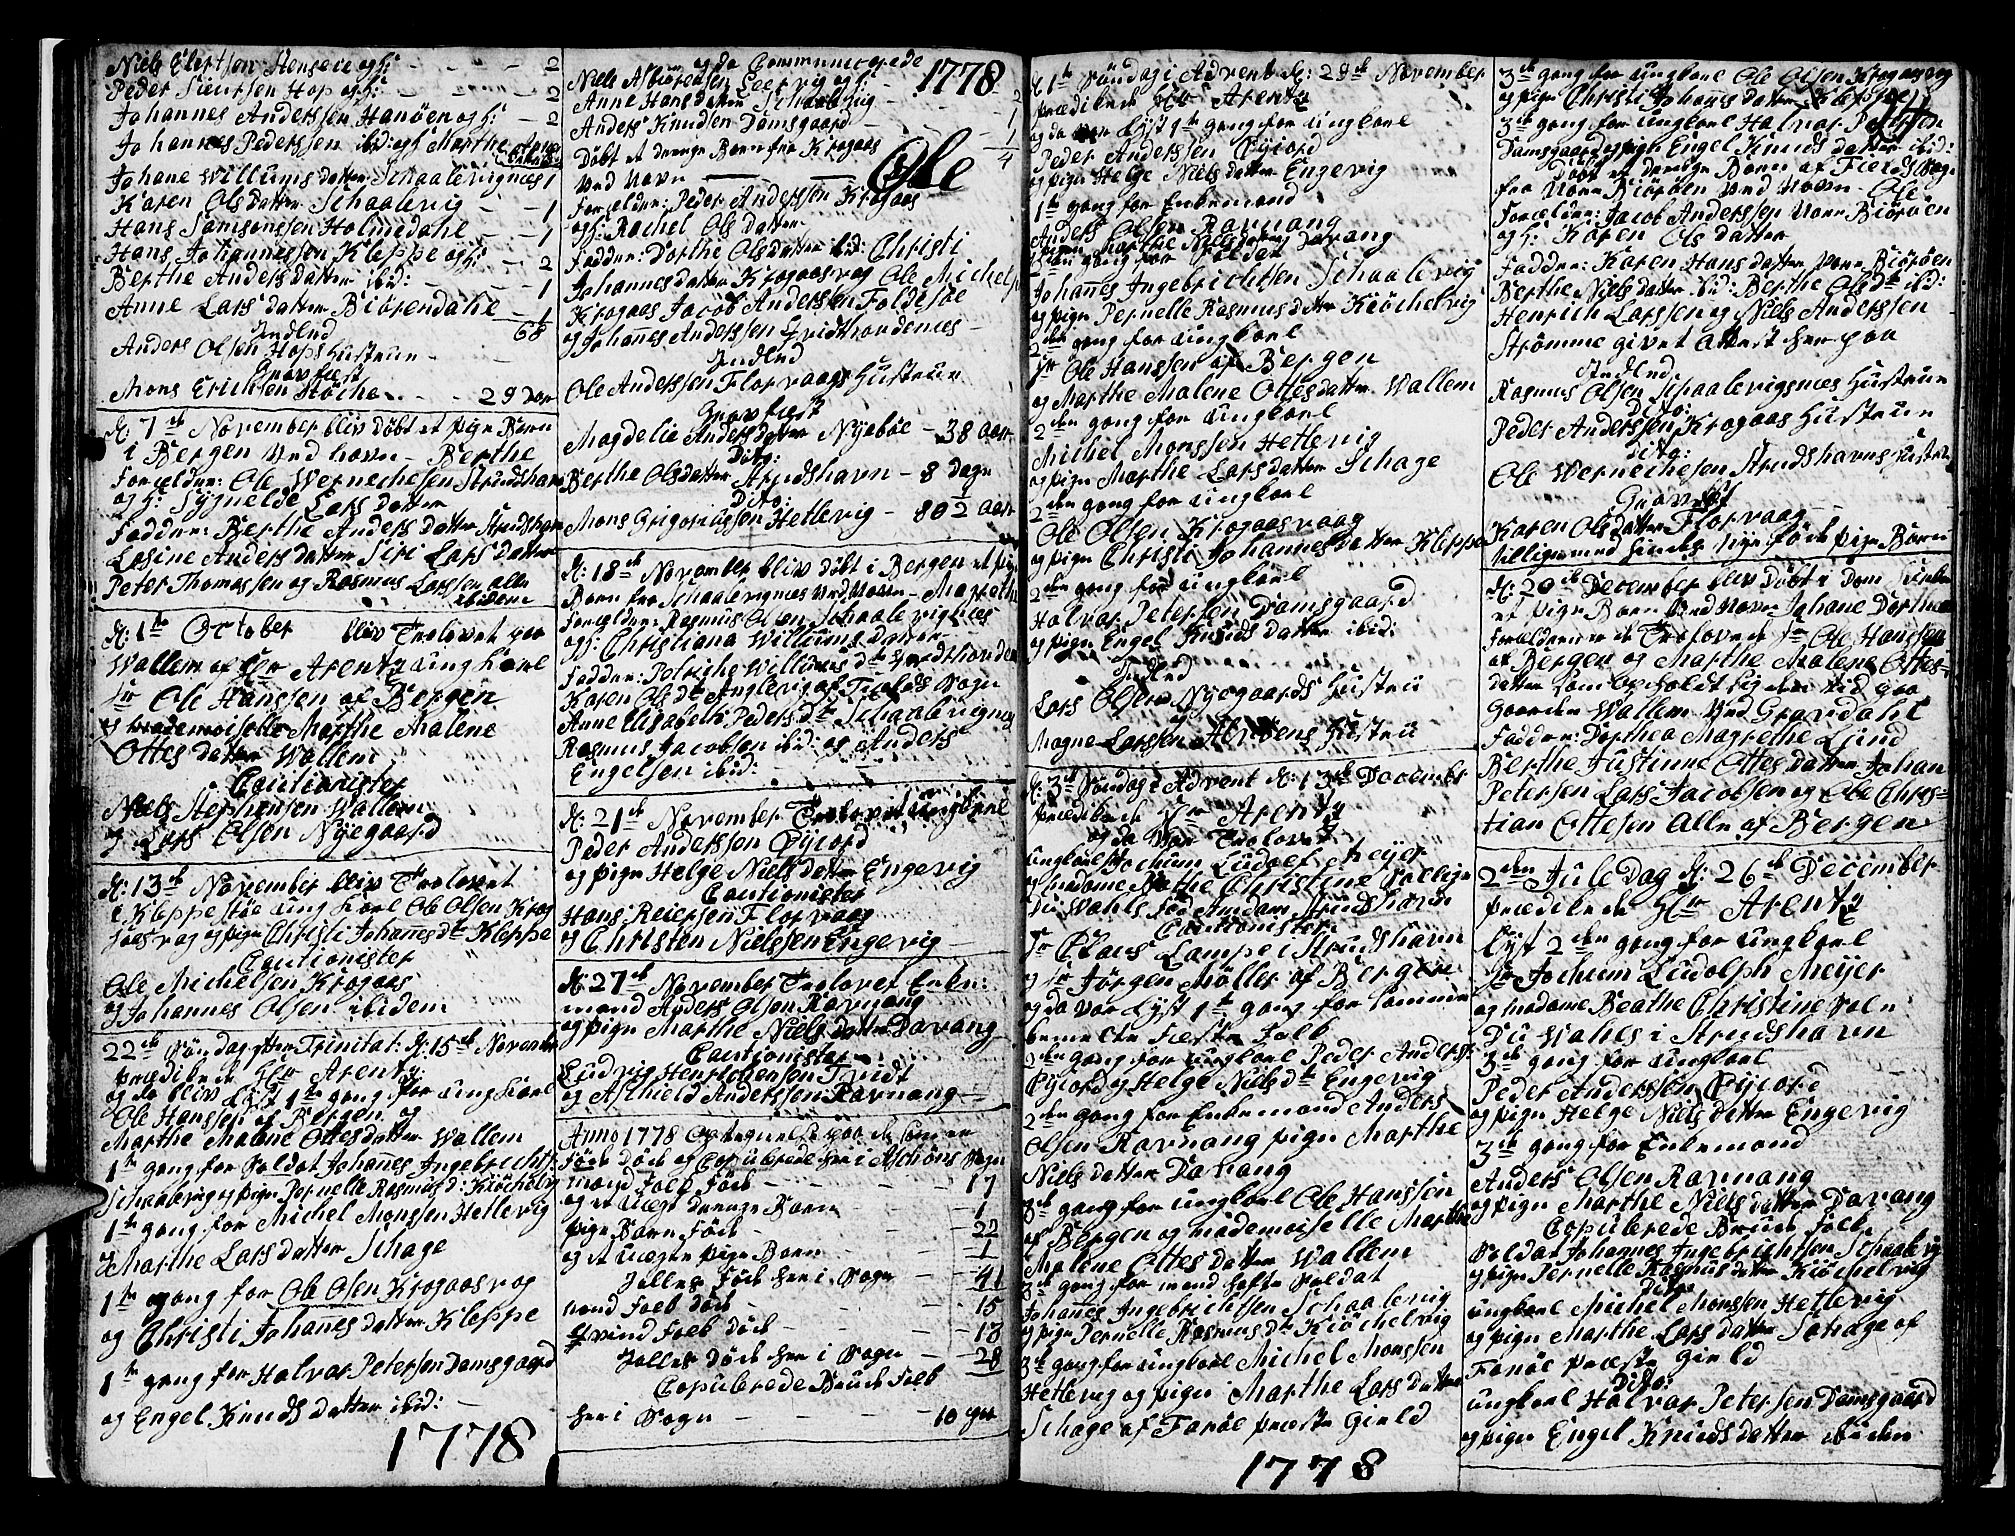 Peder Siursen Hop og H: - - 2
Johannes Anderssen Hanöen og H: - 2
Johannes Pederssen ibid: og H: Marthe
Johane Willums datter Schaalevignæs 1
Karen Ols datter Schaalevig - - 1
Hans Samsonssen Holmedahl - - 1
Hans Johannessen Kleppe og H: - 2
Berthe Anders datter ibid: - - 1
Anne Lars datter Biörendahl - 1
68
Indled
Anders Olsen Hops Hustrue
Gravfæst
Mons Erichsen - - 29 Aar
D: 7de November blev døbt et pige Barn
i Bergen ved navn - Berthe
Forældre: Ole Wernechesen Strudshavn
og H: Sygnelde Lars datter
Faddere: Berthe Anders datter Strudshavn
Anders datter Siri Lars datter
Peter Thomassen og Rasmus Larssen alle
ibidem
D: 1te October blev Trolovet paa
Wallem af Hr Arentz ung karl
Sr Ole Hanssen af Bergen
og mademoiselle Marthe Malene
Ottes datter Wallem
Cautionister
Niels Stephensen Wallem
og Lars Olsen Nyegaard
D: 13de November blev Trolovet
i Kleppestøe ung karl Ole Olsen Krog
aasvog og pige Christi Johannes dtr Kleppe
Cautionister
Ole Michelsen Krogaas
og Johannes Olsen ibidem
22de Söndag efter Trinitat: D: 15de November
prædikede Hr Arentz
og da blev Lyst 1te gang for ung karl
Ole Hanssen af Bergen og
Marthe Malene Ottes datter Wallem
1te gang for Soldat Johannes Ingebrichts:
Schaalevig og pige Pernelle Rasmus d: Kiöchelvig
1te gang for Michel Monssen Hetlevig
og Marthe Lars datter Schage
1te gang for Ole Olsen Krogaasvog
og Christi Johannes datter Kleppe
1te gang for Halvor Petersen Damsgaard
og Engel Knuds datter ibid: -
1778
og da Communicerede
1778
Niels Leervig og H: - 2
Anne Hans datter Schaalevig - 1
Anders Knudsen Damsgaard - - 1
4
Døbt et drenge Barn fra Krogaas
ved Navn - - Ole
Forældre: Peder Anderssen Krogaas
og H: Rachel Ols datter
Faddere: Dorthe Olsdatter ibid: Christi
Johannes datter Krogaasvog Ole Michels:
Krogaas Jacob Anderssen Foldesøe
og Johannes Anderssen
Indled
Ole Anderssen Florvaags Hustrue
Gravfæst
Magdelia Anders datter Nyebøe - 38 Aar
Dito:
Berthe Olsdatter Strudshavn - 8 dage
Dito:
Mons Grigoriussen Hetlevig - 80 1/2 Aar
D: 18de November blev døbt i Bergen et pige
Barn fra Schaalevignæs ved Navn - Magrethe
Forældre: Rasmus Olsen Schaalevignæs
og H: Christiana Willums datter
Faddere: Willums dtr
Karen Ols dtr af Sogn
Anne Elisabeth Peders dtr Schaalevignæs
Rasmus Jacobsen ibid: og Anders
Engelsen ibid:
D: 21de November Trolovet ungkarl
Peder Anderssen Öyiord
og pige Helge Niels datter Engevig
Cautionister
Hans Reiersen Florvaag
og Christen Nielssen Engevig
D: 27de November Trolovet Enke:
mand Anders Olsen Ravnang
og pige Marthe Niels datter Davang
Cautionister
Ludvig Henrichensen Tvedt
og Aschield Anderssen Ravnang -
Anno 1778 Optegnelse paa de som er
Föd Död og Copulerede her i Aschöens Sogn
mand Folk Föd - - - 17
og et Uægte drenge Barn - - 1
pige Barn Föd - - - 22
og et Uægte pige Barn - - 1
Jalles Föd her i Sogn - - 41
mand Folk Död - - - 15
qvind Folk Död - - - 13
Jalles Död her i Sogn - - 28
Copulerede Brude Folk
her i Sogn - - - 10 par
D: 1te Söndag i Advent D: 29de November
prædikede Hr Arentz
og da var Lyst 1te gang for ungkarl
Peder Anderssen Öyiord
og pige Helge Niels datter Engevig
1te gang for Enkemand
Anders Olsen Ravnang
og pige Marthe Niels datter Davang
2den gang for Soldat
Johannes Ingebrichtsen Schaalevig
og pige Pernelle Rasmus datter Kiöchelvig
2den gang for ungkarl
Sr Ole Hanssen af Bergen
og Marthe Malene Ottes datter Wallem
2den gang for ungkarl
Michel Monssen Hetlevig
og pige Marthe Lars datter Schage
2den gang for ungkarl
Ole Olsen Krogaasvaag
og pige Christi Johannes datter Kleppe
2den gang for ungkarl
Halvor Petersen Damsgaard
og pige Engel Knuds datter ibid:
Indled
Lars Olsen Nyegaards Hustru
og
Magne Larssen Hustru
D: 3de Söndag i Advent D: 13de December
prædikede Hr Arentz
og da var Trolovet
ungkarl Jochum Ludolf Meyer
og madame Beathe Christine Sallig
Du Wahls Föd Amdam Strudshavn
Cautionister
Sr Claus Lampe i Strudshavn
og Sr Jörgen Möller af Bergen
og da var Lyst 1te gang for samme
benevnte Fæste Folk
2den gang for ungkarl Peder Anders:
Öyiord og Helge Niels dtr Engevig
2den gang for Enkemand Anders
Olsen Ravnang pige Marthe
Niels datter Davang
3de gang for ungkarl Ole Hanssen
af Bergen og mademoiselle Marthe
Malene Ottes datter Wallem
3de gang for mand hafte Soldat
Johannes Ingebrichtsen Schaalevig
og pige Pernelle Rasmus dtr Kiöchelvig
3de gang for ungkarl Michel Monssen
Hetlevig og pige Marthe Lars datter
Schage af Fanöe præste Gield
1778
3de gang for ungkarl Ole Olsen Krogaasvog
og pige Christi Johannes datter Kleppe
3de gang for ungkarl Halvor Petersen
Damsgaard og pige Engel Knuds datter ibid:
Döbt et drenge Barn af Field Sogn
fra Biöröen ved Navn - Ole
Forældre: Jacob Anderssen Biöröen
og H: Karen Ols datter
Faddere: Karen Hans datter Biöröen
Berthe Niels datter ibid: Berthe Ols dtr ibid:
Henrich Larssen og Niels Anderssen
Strömme givet Attest her paa
Indled
Rasmus Olsen Schaalevignæs Hustrue
Dito:
Peder Anderssen Krogaas Hustrue
Dito:
Ole Wernechesen Strudshavns Hustrue
Gravfæst
Karen Ols datter Florvaag
tilligemed hendes nye föde pige Barn
D: 20de December blev Döbt i Dom Kirken
et pige Barn ved Navn Johane Dorthea
Forældrene er de Trolovede Sr Ole Hanssen
af Bergen og Marthe Malene Ottes-
datter som opholdt sig den tid paa
Gaarden Wallem ved Gravdahl
Faddere: Dorthea Magrethe Lund
Berthe Justinne Ottes datter Johan
Petersen Lars Jacobsen og Ole Chris-
tian Ottesen Alle af Bergen
2den Jule Dag D: 26de December
prædikede Hr Arentz
Lyst 2den gang for ungkarl
Sr Jochum Ludolph Meyer
og madame Beathe Christine
Du Wahls i Strudshavn
3de gang for ungkarl
Peder Anderssen Öyiord
og pige Helge Niels datter Engevig
3de gang for Enkemand
Anders Olsen Ravnang
og pige Marthe Niels datter Davang
Copulerede Brude Folk
Soldat Johannes Ingebrichtsen Schaalevig
og pige Pernelle Rasmus datter Kiöchelvig
Dito
ungkarl Michel Monssen Hetlevig
og pige Marthe Lars datter Schage af
Fanöe præste Gield
Dito:
ungkarl Halvor Petersen Damsgaard
og pige Engel Knuds datter ibidem